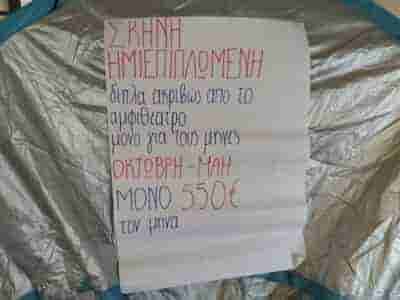 ΣΚΗΝΗ
ΗΜΙΕΠΙΠΛΩΜΕΝΗ
δίπλα ακριβώς από το
αμφιθέατρο
μόνο για τους μήνες
ΟΚΤΩΒΡΗ - ΜΑΗ
ΜΟΝΟ 550€
τον μήνα